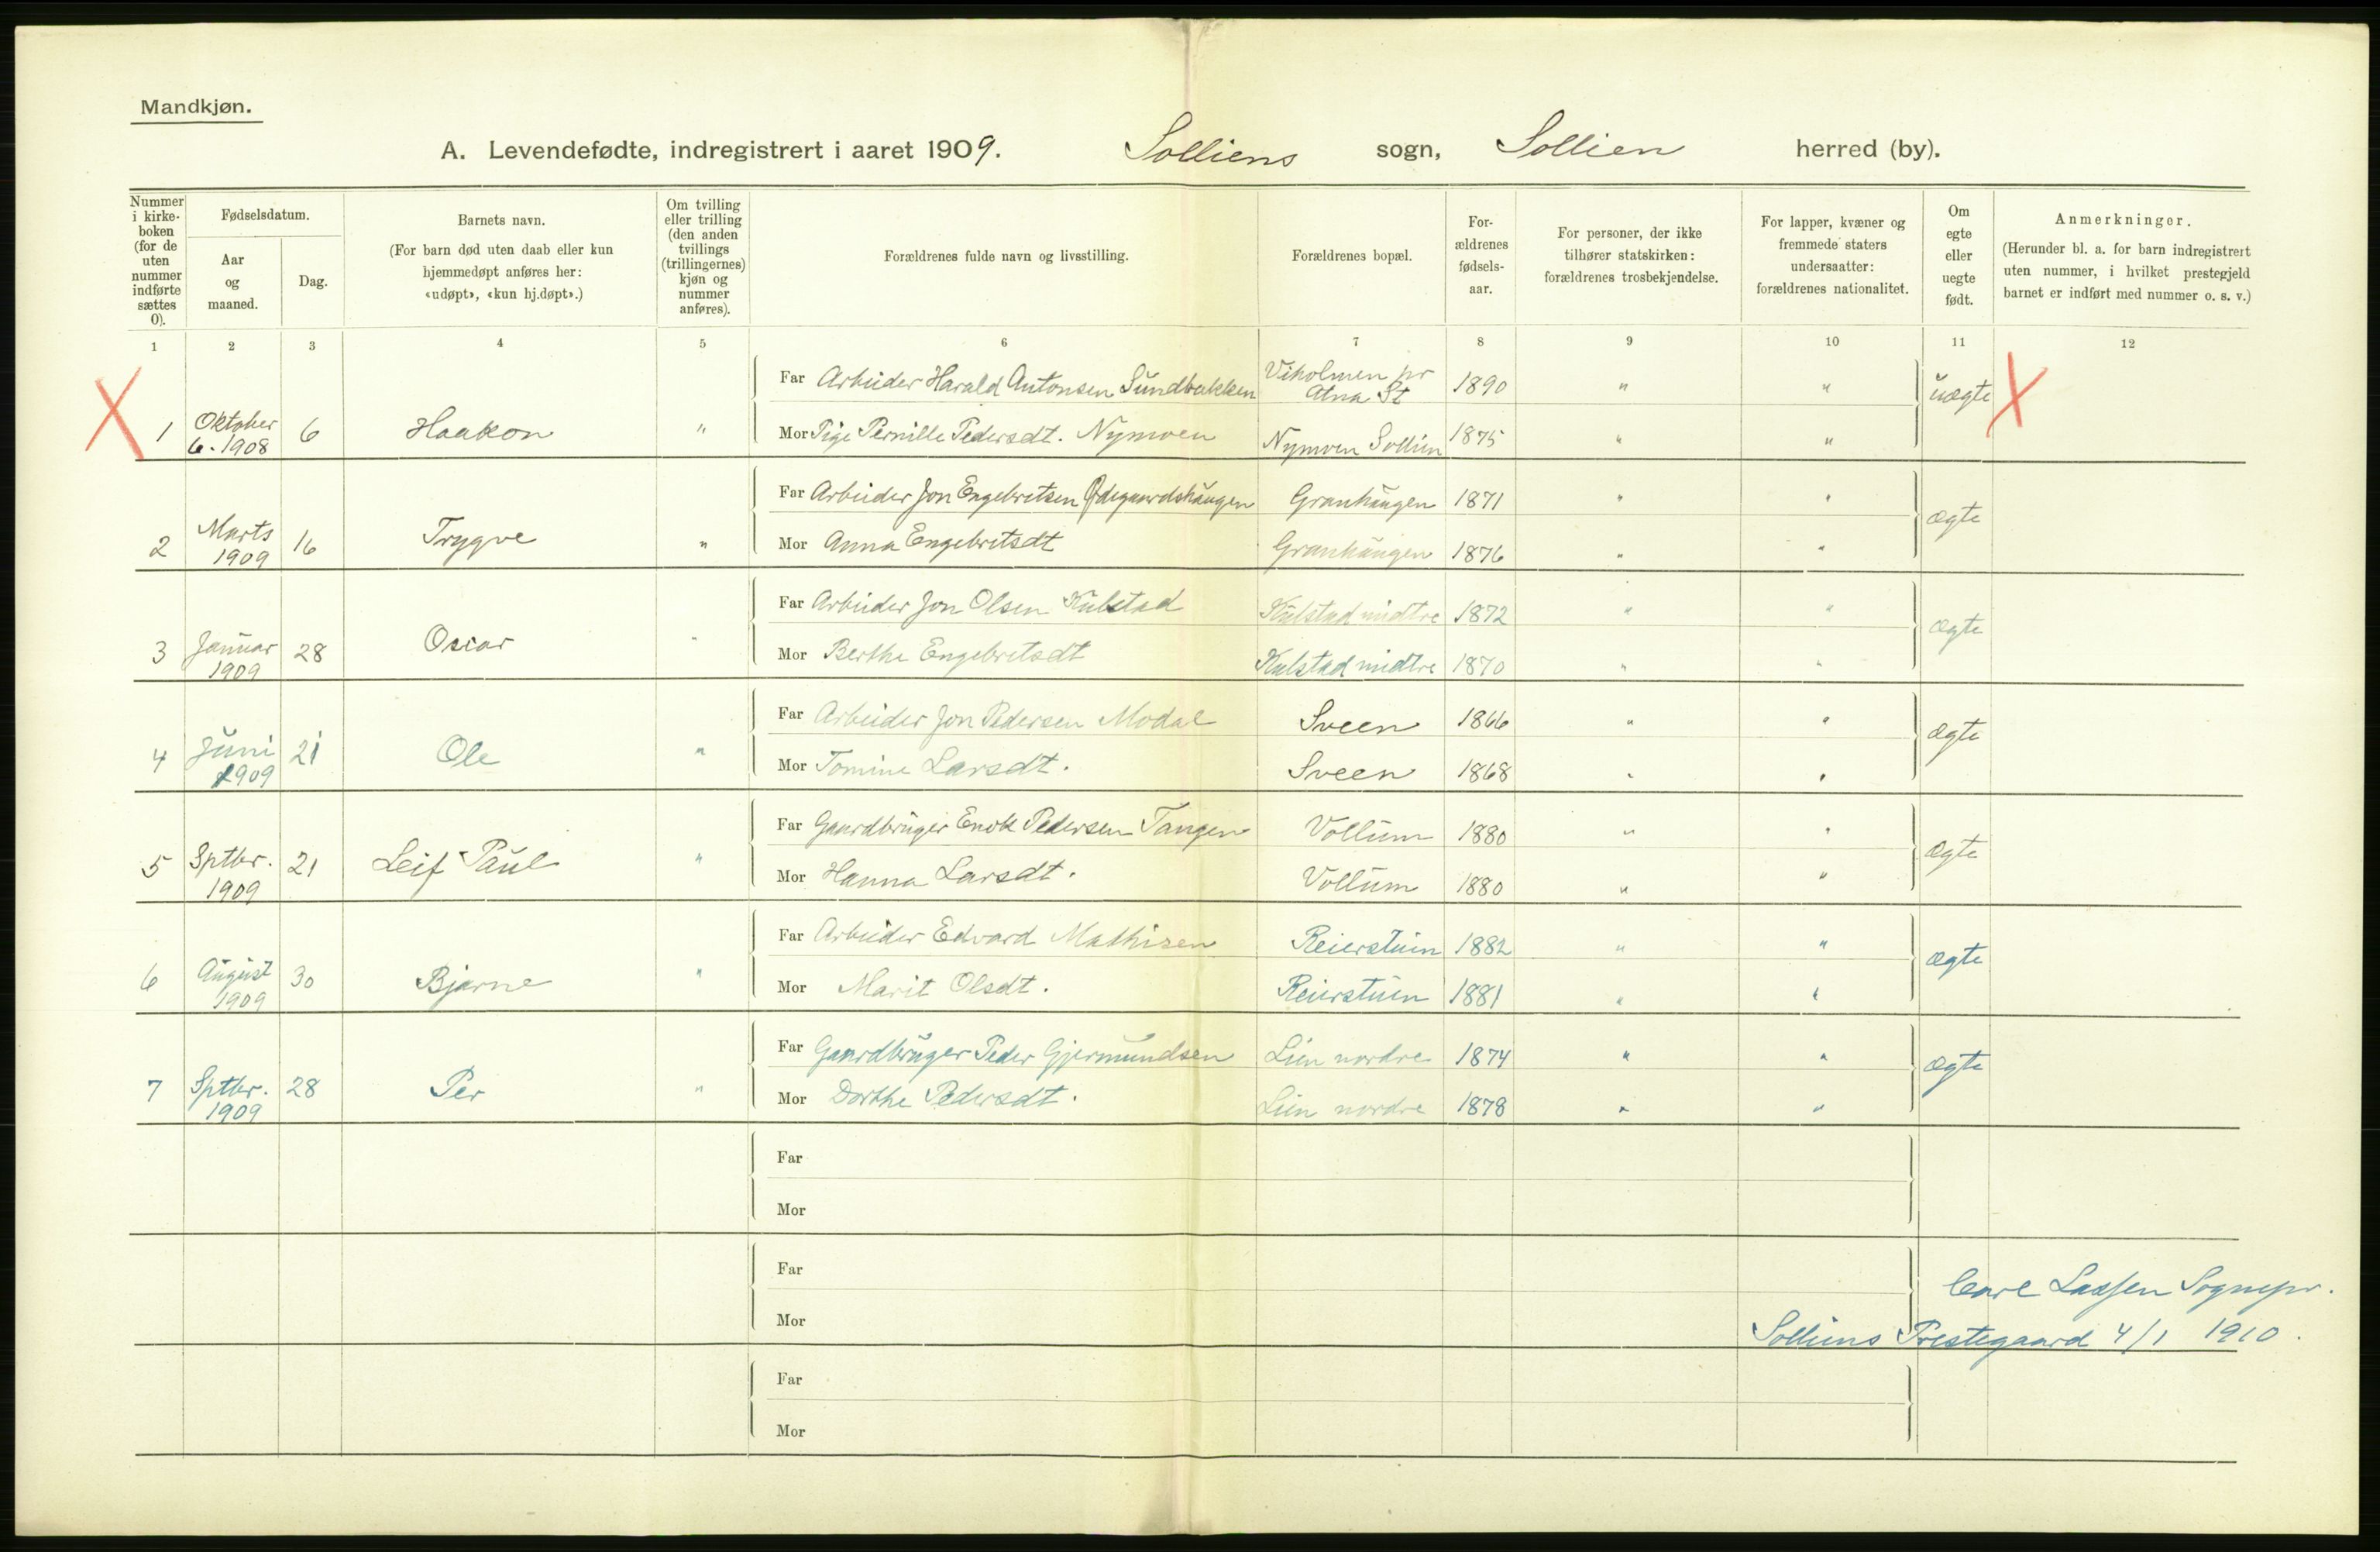 Mandkjøn.
A. Levendefødte, indregistrert i aaret 1909. Solliens sogn, Sollien herred (by).
Nummer i kirke-boken (for de uten nummer indførte sættes 0).
Fødselsdatum.
Aar og maaned.
Dag.
Barnets navn.
(For barn død uten daab eller kun hjemmedøpt anføres her: «udøpt», «kun hj.døpt».)
Om tvilling eller trilling (den anden tvillings (trillingernes) kjøn og nummer anføres).
Forældrenes fulde navn og livsstilling.
Forældrenes bopæl.
For-ældrenes fødsels-aar.
For personer, der ikke tilhører statskirken: forældrenes trosbekjendelse.
For lapper, kvæner og fremmede staters undersaatter: forældrenes nationalitet.
Om egte eller uegte født.
Anmerkninger.
(Herunder bl. a. for barn indregistrert uten nummer, i hvilket prestegjeld barnet er indført med nummer o. s. v.)
1 2 3 4 5 6 7 8 9 10 11 12
Far Arbeider Harald Antonsen Sundbakken Viholmen pr Atna St 1890 " " uægte
1 Oktober 6. 1908 6 Haakon " Mor Pige Pernille Pedersdt. Nymoen Nymoen Sollien 1875 " "
Far Arbeider Jon Engebretsen Ødegaardshaugen Granhaugen 1871 " " ægte
2 Marts 1909 16 Trygve " Mor Anna Engebretsdt Granhaugen 1876 " "
Far Arbeider Jon Olsen Kulstad Kulstad midtre 1872 " " ægte
3 Januar 1909 28 Oscar " Mor Berthe Engebretsdt Kulstad midtre 1870 " "
Far Arbeider Jon Pedersen Modal Sveen 1866 " " ægte
4 Juni 1909 21 Ole " Mor Tomine Larsdt. Sveen 1868 " "
Far Gaardbruger Enok Pedersen Tangen Vollum 1880 " " ægte
5 Sptbr. 1909 21 Leif Paul " Mor Hanna Larsdt. Vollum 1880 " "
Far Arbeider Edvard Mathisen Reierstuen 1882 " " ægte
6 August 1909 30 Bjarne " Mor Marit Olsdt. Reierstuen 1881 " "
Far Gaardbruger Peder Gjermundsen Lien nordre 1874 " " ægte
7 Sptbr. 1909 28 Per " Mor Dorthe Pedersdt. Lien nordre 1878 " "
Far
Mor
Far
Carl Lassen Sognepr.
Mor
Solliens Prestegaard 4/1 1910.
Far
Mor